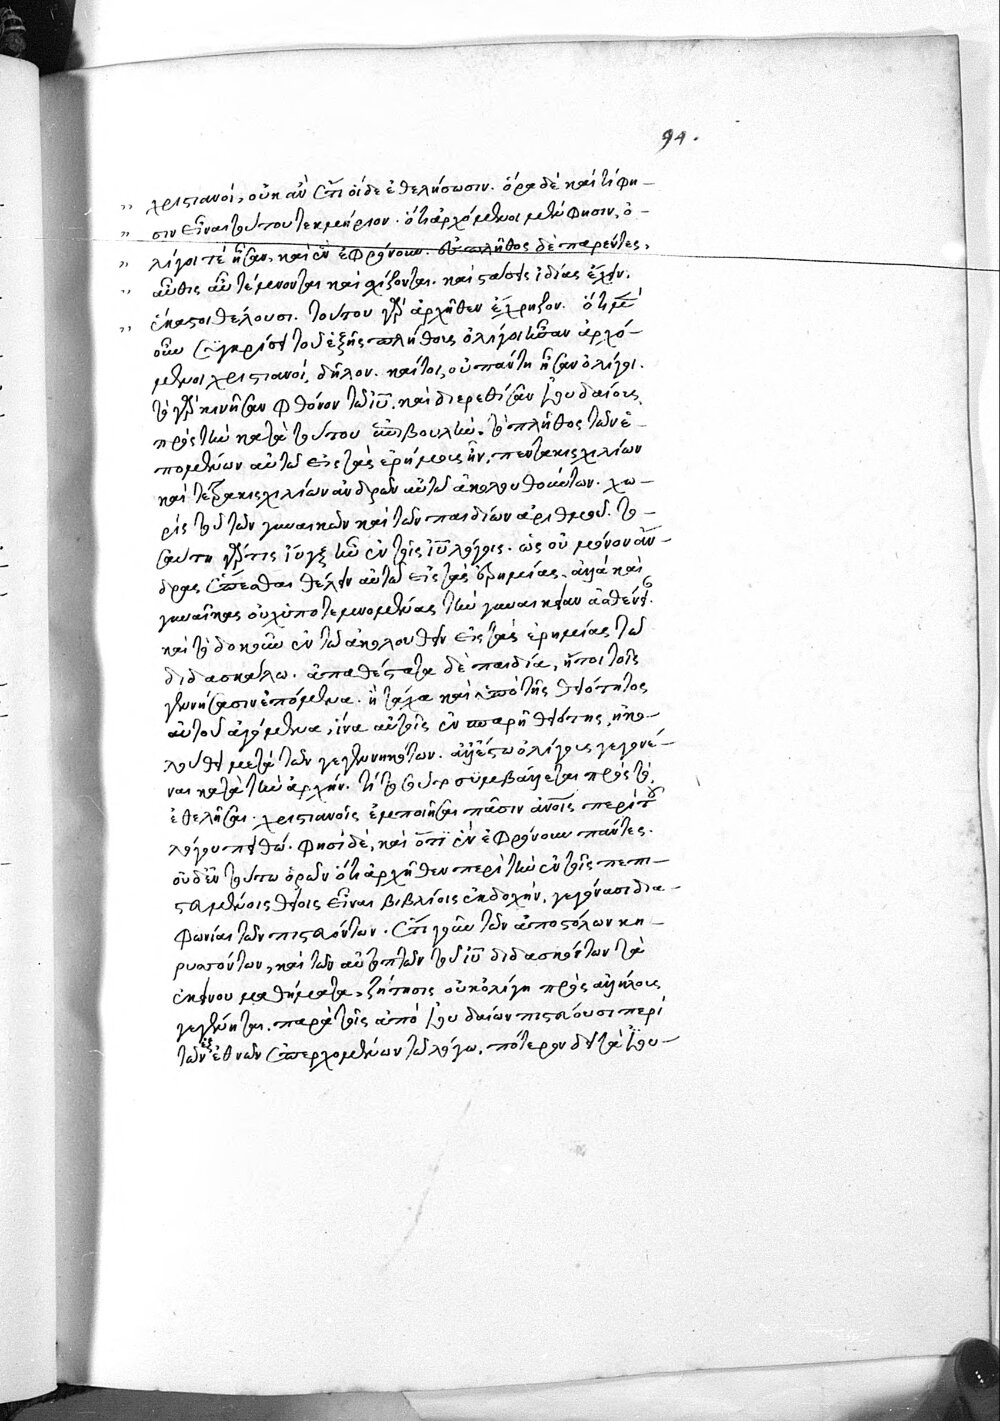 94.
„ χριστιανοὶ, οὐκ ἂν ἔτι οἵδε ἐθελήσωσιν. ὅρα δὲ καὶ τί φη-
„ σιν εἶναι τούτου τεκμήριον. ὅτι ἀρχόμενοι μέν φησιν, ὀ-
„ λίγοι τὲ ἦσαν, καὶ ἓν ἐφρόνουν. εἰς πλῆθος δὲ παρέντες,
„ αὖθις αὖ τέμνονται καὶ σχίζονται. καὶ στάσεις ἰδίας ἔχειν
„ ἕκαστοι θέλουσι. τούτου γὰρ ἀρχῆθεν ἔχρηζον. ὅτι μὲν
οὖν συγκρίσει τοῦ ἑξῆς πλήθους ὀλίγοι ἦσαν ἀρχό-
μενοι χριστιανοὶ, δῆλον. καίτοι, οὐ πάντη ἦσαν ὀλίγοι.
τὸ γὰρ κινῆσαν φθόνον τῶ ιυ, καὶ διερεθίσαν ἰουδαίους
πρὸς τὴν κατὰ τούτου ἐπιβουλὴν, τὸ πλῆθος τῶν ἑ-
πομένων αὐτῶ εἰς τὰς ἐρήμους ἦν, πεντακισχιλίων
καὶ τετρακισχιλίων ἀνδρῶν αὐτῶ ἀκολουθούντων. χω-
ρὶς τοῦ τῶν γυναικῶν καὶ τῶν παιδίων ἀριθμοῦ. το-
σαύτη γάρ τις ἴυγξ ἦν ἐν τοῖς ιυ λόγοις. ὡς οὐ μόνον ἄν-
δρας ἕπεσθαι θέλειν αὐτῶ εἰς τὰς ἐρημίας, ἀλλὰ καὶ
γυναῖκας οὐχ ὑποτεμνομένας τὴν γυναικείαν ἀσθένειαν.
καὶ τὸ δοκοῦν ἐν τῶ ἀκολουθεῖν εἰς τὰς ἐρημίας τῶ
διδασκάλω. ἀπαθέστατα δὲ παιδία, ἤτοι τοῖς
γεννήσασιν ἑπόμενα. ἢ τάχα καὶ ὑπὸ τῆς θειότητος
αὐτοῦ ἀγόμενα, ἵνα αὐτοῖς ἐνσπαρῆ θειότης, ἠκο-
λούθει μετὰ τῶν γεγεννηκότων. ἀλλ' ἔστω ὀλίγους γεγονέ-
ναι κατὰ τὴν ἀρχήν. τί τοῦτο συμβάλλεται πρὸς τὸ
ἐθελῆσαι χριστιανοῖς ἐμποιῆσαι πᾶσιν ἀνοις περὶ τοῦ
λόγου πειθώ. φησὶ δὲ, καὶ ὅτι ἓν ἐφρόνουν πάντες.
οὐδ' ἐν τούτω ὁρῶν ὅτι ἀρχῆθεν περὶ τὴν ἐν τοῖς πεπι-
στευμένοις θείοις εἶναι βιβλίοις ἐκδοχὴν, γεγόνασι δια-
φωνίαι τῶν πιστευόντων. ἔτι γοῦν τῶν ἀποστόλων κη-
ρυσσόντων, καὶ τῶν αὐτοπτῶν τοῦ ιυ διδασκόντων τὰ
ἐκείνου μαθήματα, ζήτησις οὐκ ὀλίγη πρὸς ἀλλήλους
γεγένηται. παρὰ τοῖς ἀπὸ ἰουδαίων πιστεύουσι περὶ
τῶν ἐξ ἐθνῶν ὑπερχομένων τῶ λόγω, πότερον δεῖ τὰ ἰου-